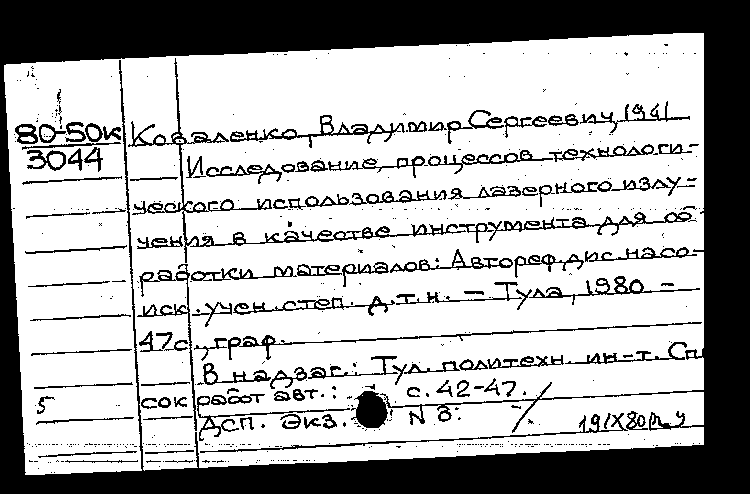 80-50к Коваленко, Владимир Сергеевич, 1941
3044 Исследование процессов технологи-
ческого использования лазерного излу-
чения в качестве инструмента для об-
работки материалов: Автореф. дис. на со-
иск. учен. степ. д.т.н. — Тула, 1980 —
47с., граф.
В надзаг.: Тул. политехн. ин-т. Спи
5 сок работ авт.: с. 42-47.
ДСП. Экз. N 8.